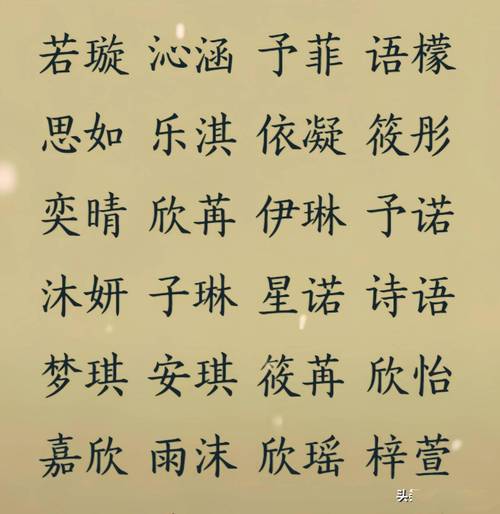 若璇 沁涵 予菲 语檬
思如 乐淇 依凝 筱彤
奕晴 欣苒 伊琳 予诺
沐妍 子琳 星诺 诗语
梦琪 安琪 筱苒 欣怡
嘉欣 雨沫 欣瑶 梓萱
头